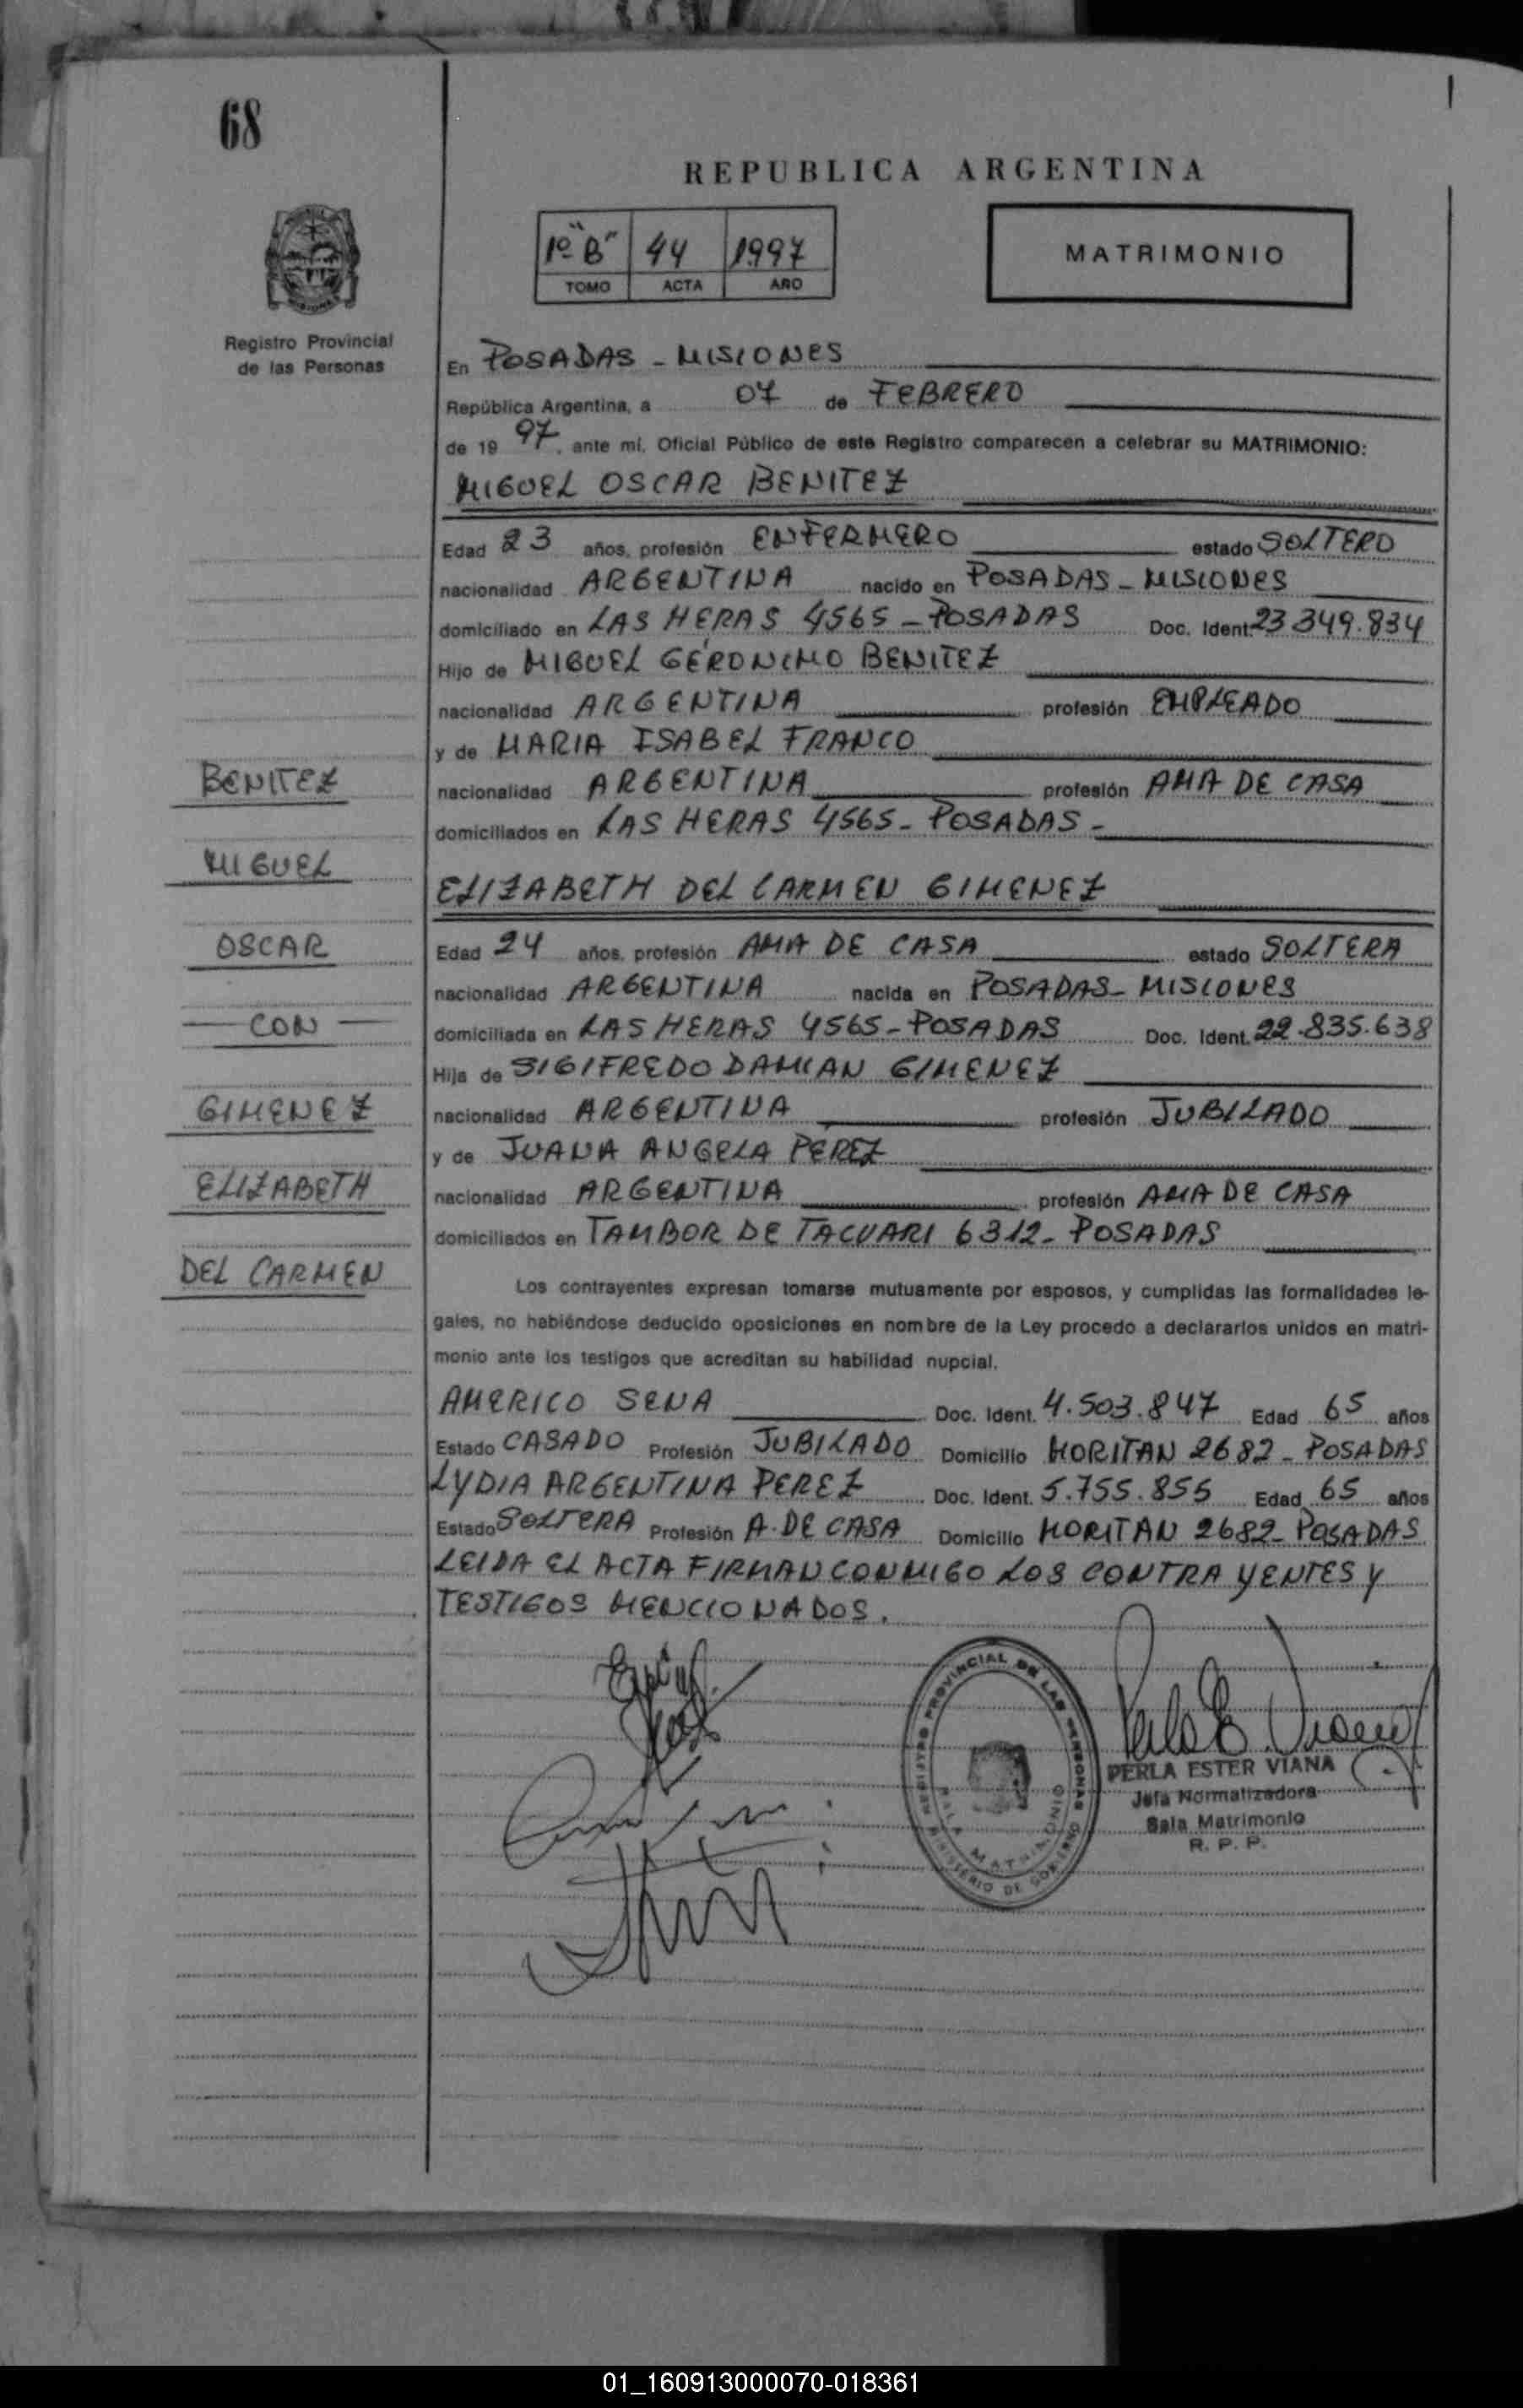 68
REPUBLICA ARGENTINA
1º "B" 44 1997
TOMO ACTA AÑO
MATRIMONIO
Registro Provincial
de las Personas
En POSADAS - MISIONES
República Argentina, a 07 de FEBRERO
de 19 97, ante mí, Oficial Público de este Registro comparecen a celebrar su MATRIMONIO:
MIGUEL OSCAR BENITEZ
Edad 23 años, profesión ENFERMERO estado SOLTERO
nacionalidad ARGENTINA nacido en POSADAS - MISIONES
domiciliado en LAS HERAS 4565 - POSADAS Doc. Ident. 23.349.834
Hijo de MIGUEL GERONIMO BENITEZ
nacionalidad ARGENTINA profesión EMPLEADO
y de MARIA ISABEL FRANCO
nacionalidad ARGENTINA profesión AMA DE CASA
domiciliados en LAS HERAS 4565 - POSADAS -
ELIZABETH DEL CARMEN GIMENEZ
Edad 24 años, profesión AMA DE CASA estado SOLTERA
nacionalidad ARGENTINA nacida en POSADAS - MISIONES
domiciliada en LAS HERAS 4565 - POSADAS Doc. Ident. 22.835.638
Hija de SIGIFREDO DAMIAN GIMENEZ
nacionalidad ARGENTINA profesión JUBILADO
y de JUANA ANGELA PEREZ
nacionalidad ARGENTINA profesión AMA DE CASA
domiciliados en TAMBOR DE TACUARI 6312 - POSADAS
BENITEZ
MIGUEL
OSCAR
CON
GIMENEZ
ELIZABETH
DEL CARMEN
Los contrayentes expresan tomarse mutuamente por esposos, y cumplidas las formalidades le-
gales, no habiéndose deducido oposiciones en nombre de la Ley procedo a declararlos unidos en matri-
monio ante los testigos que acreditan su habilidad nupcial.
AMERICO SENA Doc. Ident. 4.503.847 Edad 65 años
Estado CASADO Profesión JUBILADO Domicilio MORITAN 2682 - POSADAS
LYDIA ARGENTINA PEREZ Doc. Ident. 5.755.855 Edad 65 años
Estado SOLTERA Profesión A. DE CASA Domicilio MORITAN 2682 - POSADAS
LEIDA EL ACTA FIRMAN CONMIGO LOS CONTRAYENTES Y
TESTIGOS MENCIONADOS.
REGISTRO PROVINCIAL DE LAS PERSONAS
SALA MATRIMONIO
MINISTERIO DE GOBIERNO
PERLA ESTER VIANA
Jefa Normatizadora
Sala Matrimonio
R. P. P.
01_160913000070-018361